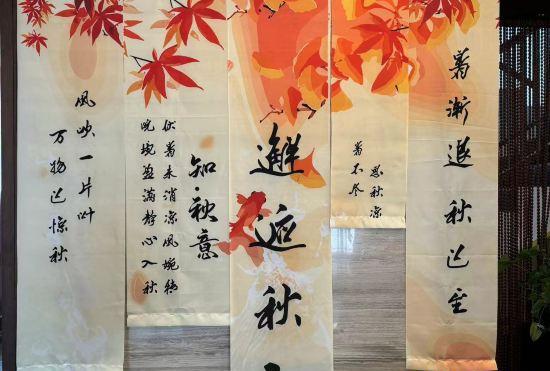 風吹一片叶
万物已惊秋
知·秋意
伏暑未消凉風婉转
盈满静心入秋
邂逅秋
暑不尽
思秋凉
暑渐退秋已至